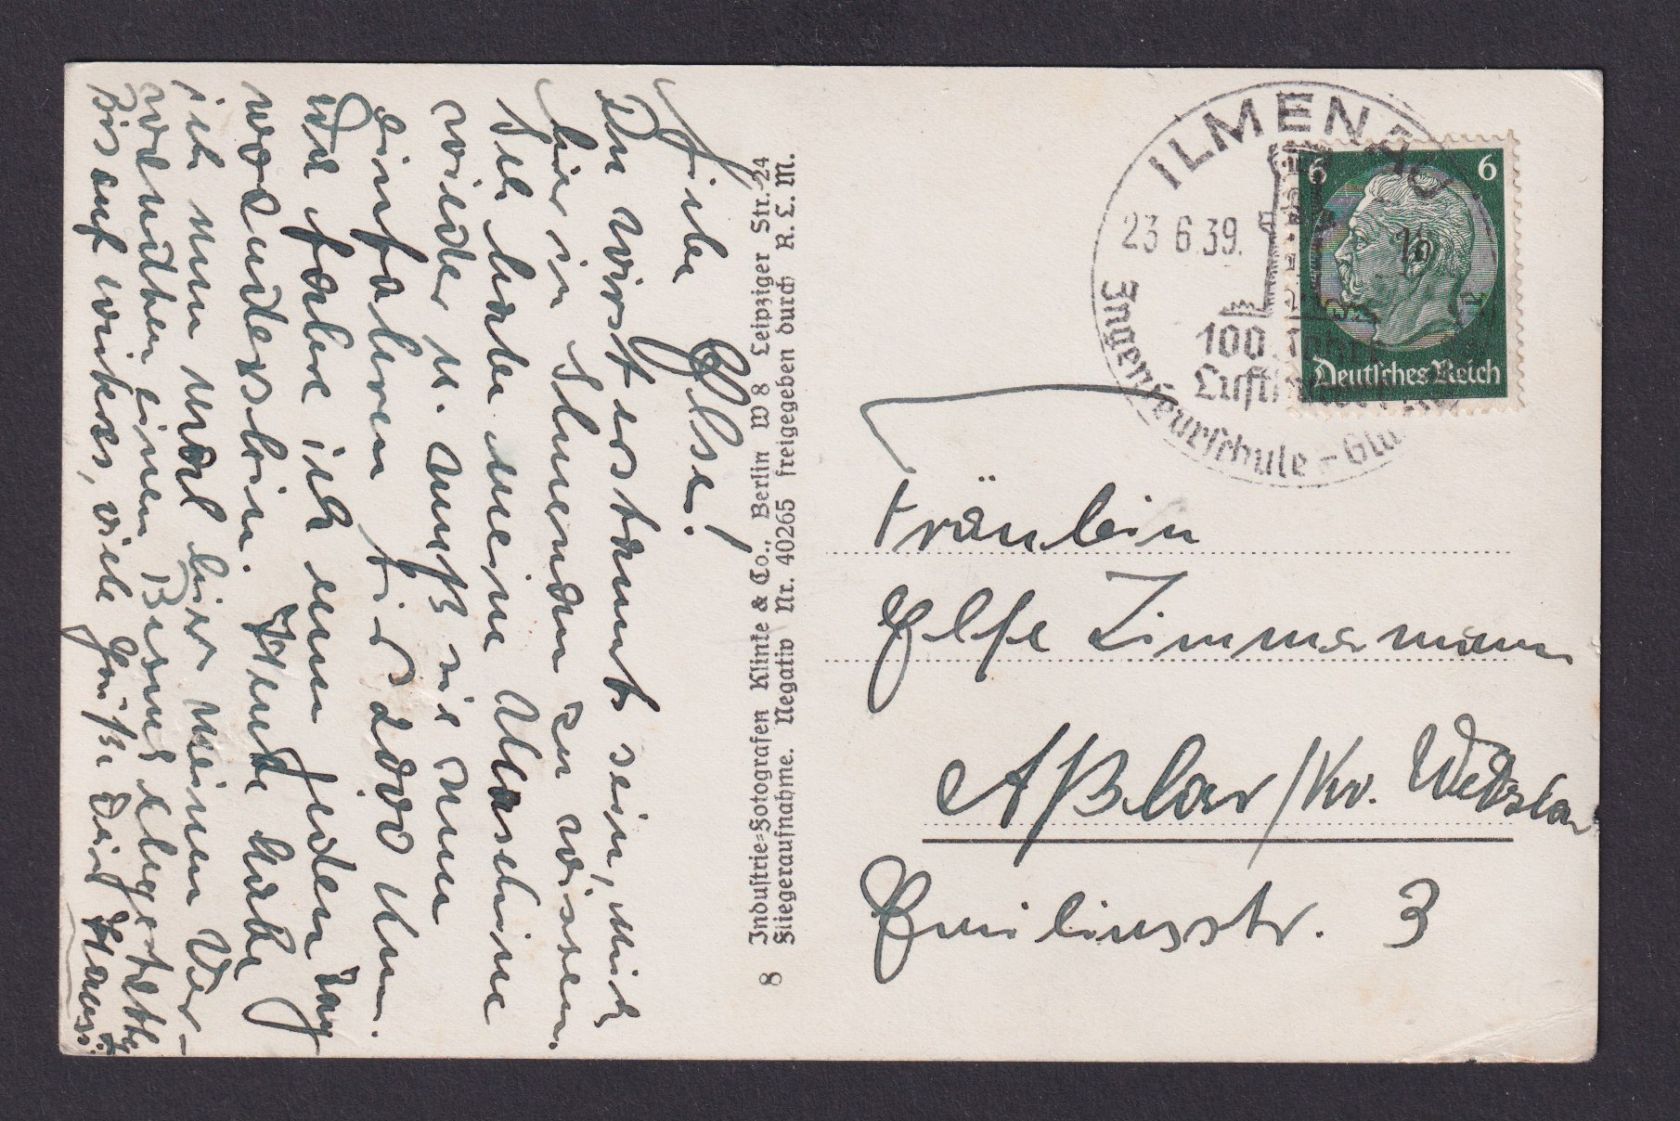 Liebe Else!
Du wirst erstaunt sein, mich
hier in Ilmenau zu wissen.
Ich habe meine Maschine
wieder u. muß sie nun
einfahren bis 2000 km.
Da fahre ich nun jeden Tag
woanders hin. Heute habe
ich nun mal hier meinen Ver-
wandten einen Besuch abgestattet
Bis auf weiteres, viele Grüße Dein Hans.
8 Industrie=Fotografen Klinke & Co., Berlin W 8 Leipziger Str. 24
Fliegeraufnahme. Negativ Nr. 40265 freigegeben durch R. L. M.
ILMENAU
23.6.39.
100 Jahre
Luftkurort
Ingenieurschule =
6 6
Deutsches Reich
Fräulein
Else Zimmermann
Aßlar/Kr. Wetzlar
Emilienstr. 3